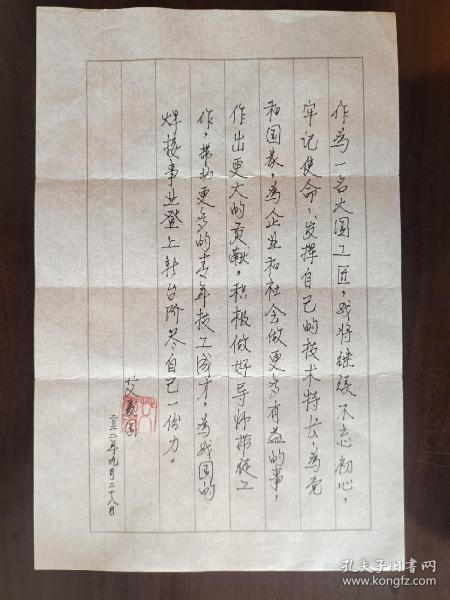 作为一名大国工匠，我将继续不忘初心，
牢记使命，发挥自己的技术特长，为党
和国家，为企业和社会做更多有益的事，
作出更大的贡献，积极做好导师带徒工
作，带动更多的青年技工成才，为我国的
焊接事业登上新台阶尽自己一份力。
艾爱国
二〇二一年九月二十八日
孔夫子旧书网
www.kongfz.com